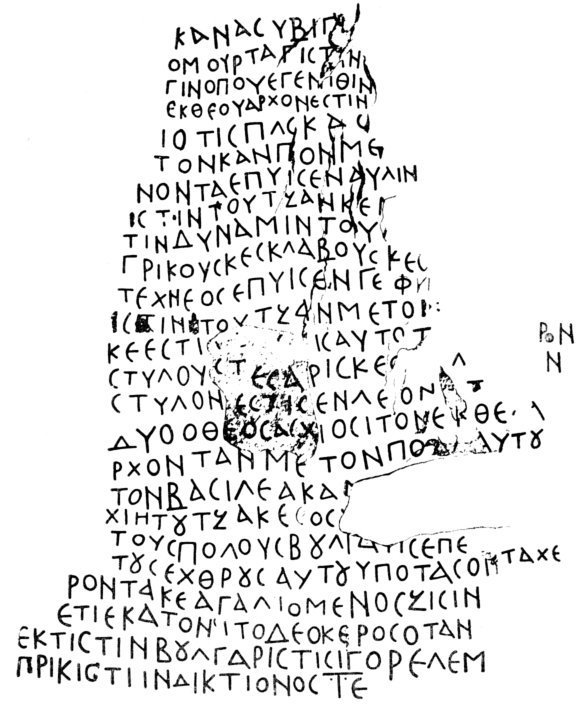 ΚΑΝΑCΥΒΙΓΙ
ΟΜΟΥΡΤΑΓΙCΤΙΝ
ΓΙΝΟΠΟΥΕΓΕΝΙΘΙΝ
ΕΚΘΕΟΥΑΡΧΟΝΕCΤΙΝ
ΙΟΤΙCΠΛCΚΑC
ΤΟΝΚΑΝΠΟΝΜΕ
ΝΟΝΤΑΕΠΥΙCΕΝΑΥΛΙΝ
ΙCΤΙΝΤΟΥΤΖΑΝΚΕ
ΤΙΝΔΥΝΑΜΙΝΤΟΥ
ΓΡΙΚΟΥCΚΕCΚΛΑΒΟΥCΚΕ
ΤΕΧΝΕΟCΕΠΥΙCΕΝΓΕΦΥ
ΙCΤΙΝΤΟΥΤΖΑΝΜΕΤΟ
ΚΕΕCΤΙ ΙCΑΥΤΟΤ ΡΟΝ
CΤΥΛΟΥCΤΕCΑΡΙCΚΕ Λ Ν
CΤΥΛΟΝΕCΤΙCΕΝΛΕΟΝΤ
ΔΥΟΟΘΕΟCΑΞΙΟCΙΤΟΝΕΚΘΕ Α
ΡΧΟΝΤΑΝΜΕΤΟΝΠΟΔΑΑΥΤȢ
ΤΟΝΒΑCΙΛΕΑΚΑ
ΧΙΗΤȢΤΖΑΚΕΕΟC
ΤΟΥCΠΟΛΟΥCΒȢΛΓΑΡΙCΕΠΕ
ΤȢCΕΧΘΡȢCΑΥΤȢΥΠΟΤΑCΟΝΤΑΧΕ
ΡΟΝΤΑΚΕΑΓΑΛΙΟΜΕΝΟCΖΙCΙΝ
ΕΤΙΕΚΑΤΟΝΙΤΟΔΕΟΚΕΡΟCΟΤΑΝ
ΕΚΤΙCΤΙΝΒȢΛΓΑΡΙCΤΙCΙΓΟΡΕΛΕΜ
ΠΡΙΚΙCΤΙΙΝΔΙΚΤΙΟΝΟCΤΕ